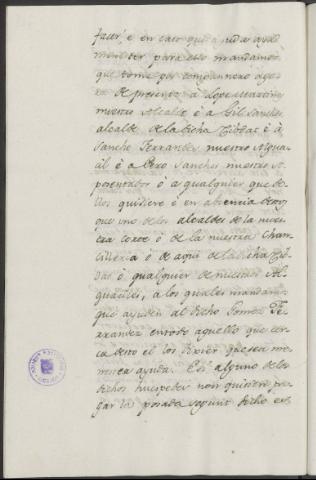 facer, e en caso que aiuda ayad
menester para esto mandamos
que tome por compannero agora
de presente a Lope Martines
nuestro Alcalde ó a Gil Sanches
alcalde de la dicha Cibdat ó á
Sancho Ferrandes nuestro Algua
cil ó a Pero Sanches nuestro A
posentador ó a qualquier que de
llos quisiere ó en absencia
que uno de los alcaldes de la nues
tra corte ó de la nuestra Chan
cilleria ó de aqui de la dicha Cib
dat ó qualquier de nuestros Al
guaciles, a los quales mandamos
que ayuden al dicho Gomes Fe
rrandes en todo aquello que cer
ca desto el los dixier que sea me
nester ayuda. E si alguno de los
dichos huespedes non quisiere pa
gar la posada segunt dicho es